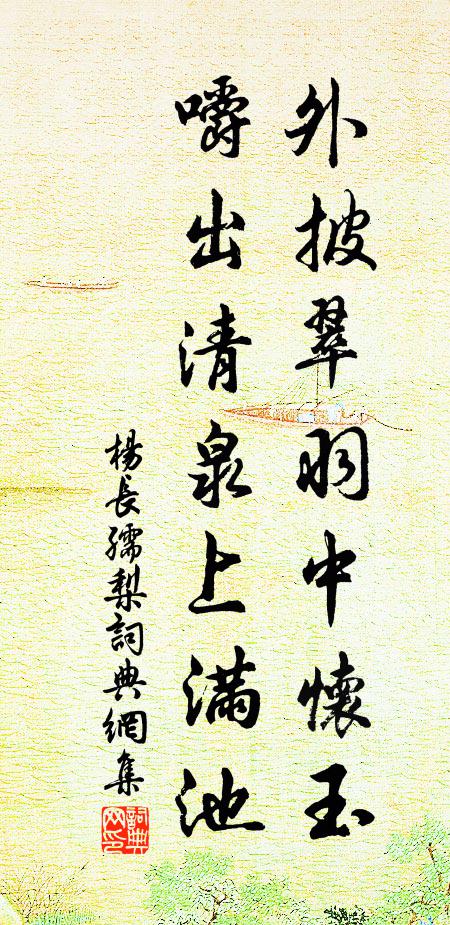 外披翠羽中懷玉
嚼出清泉上滿池
楊長孺梨詞典網集
詞典网印